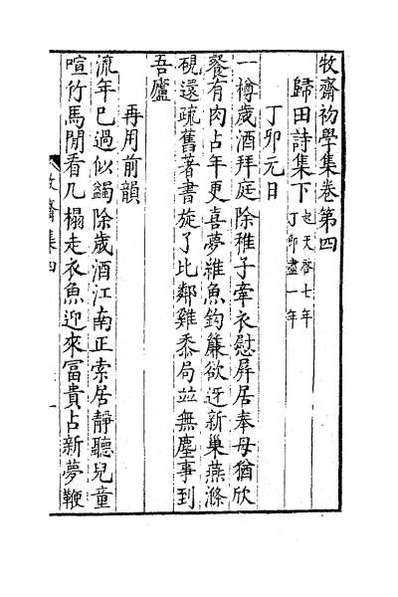 牧齋初學集卷第四
歸田詩集下
起天啓七年
丁卯盡一年
丁卯元日
一樽歲酒拜庭除稚子牽衣慰屏居奉母猶欣
餐有肉占年更喜夢維魚鈎簾欲迓新巢燕滌
硯還疏舊著書旋了比鄰雞黍局竝無塵事到
吾廬
再用前韻
流年已過似蠲除歲酒江南正索居靜聽兒童
喧竹馬閒看几榻走衣魚迎來富貴占新夢鞭
牧齋集四
一